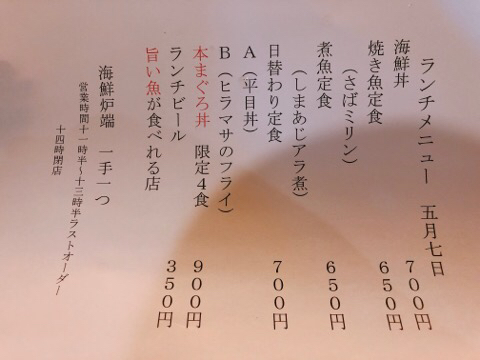 ランチメニュー　五月七日
海鮮丼　700円
焼き魚定食　650円
（さばミリン）
煮魚定食　650円
（しまあじアラ煮）
日替わり定食　700円
A（平目丼）
B（ヒラマサのフライ）
本まぐろ丼　限定4食　900円
ランチビール　350円
旨い魚が食べれる店
海鮮炉端　一手一つ
営業時間十一時半～十三時半ラストオーダー
十四時閉店